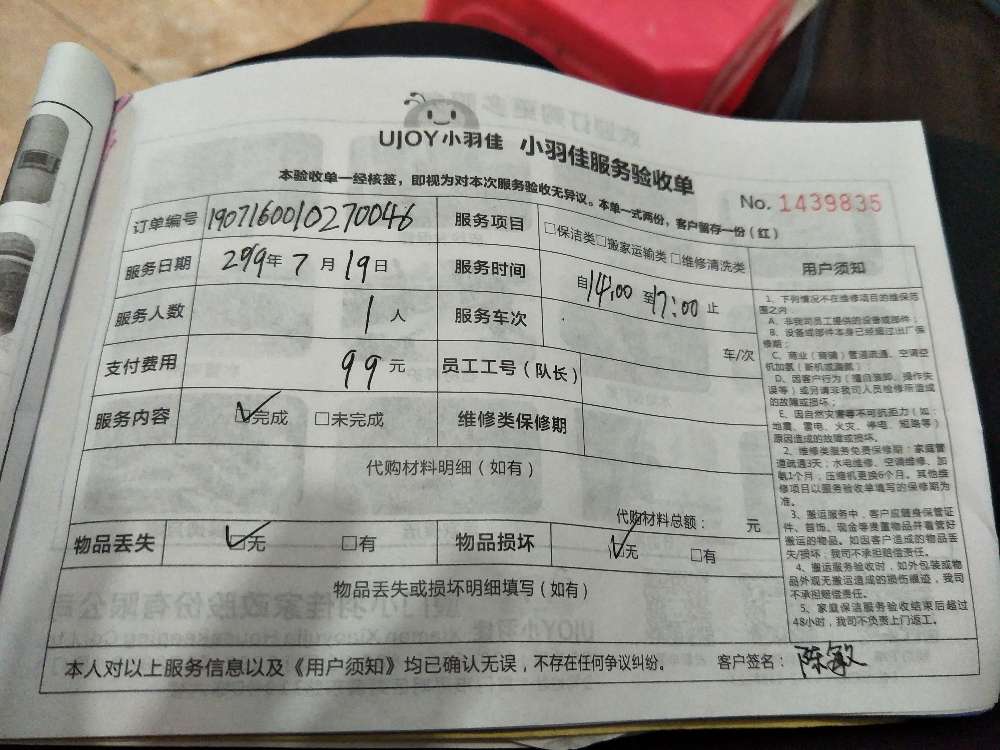 UJOY小羽佳 小羽佳服务验收单
本验收单一经核签，即视为对本次服务验收无异议。本单一式两份，客户留存一份（红）
No. 1439835
订单编号 1907160010270046 服务项目 □保洁类□搬家运输类 □维修清洗类
服务日期 299年 7月19日 服务时间 自14:00 至17:00 止
服务人数 1人 服务车次 车/次
支付费用 99元 员工工号（队长）
服务内容 ☑完成 □未完成 维修类保修期
代购材料明细（如有）
代购材料总额： 元
物品丢失 ☑无 □有 物品损坏 ☑无 □有
物品丢失或损坏明细填写（如有）
本人对以上服务信息以及《用户须知》均已确认无误，不存在任何争议纠纷。 客户签名：陈敏
用户须知
1、下列情况不在维修项目的维保范
围之内
A、非我司员工提供的设备或部件；
B、设备或部件本身已经超过出厂保
修期；
C、商业（商铺）管道疏通、空调空
机加氨（新机或漏氨）
D、因客户行为（擅自装卸、操作失
误等）或另请非我司人员检修所造成
的故障或损坏；
E、因自然灾害等不可抗拒力（如：
地震、雷电、火灾、停电、短路等）
原因造成的故障或损坏。
2、维修类服务免费保修期：家庭管
道疏通3天；水电维修、空调维修、加
氨1个月；压缩机更换6个月。其他维
修项目以服务验收单填写的保修期为
准。
3、搬运服务中，客户应随身保管证
件、首饰、现金等贵重物品并看管好
搬运的物品。如因客户造成的物品丢
失/损坏，我司不承担赔偿责任。
4、搬运服务验收时，如外包装或物
品外观无搬运造成的损伤痕迹，我司
不承担赔偿责任。
5、家庭保洁服务验收结束后超过
48小时，我司不负责上门返工。